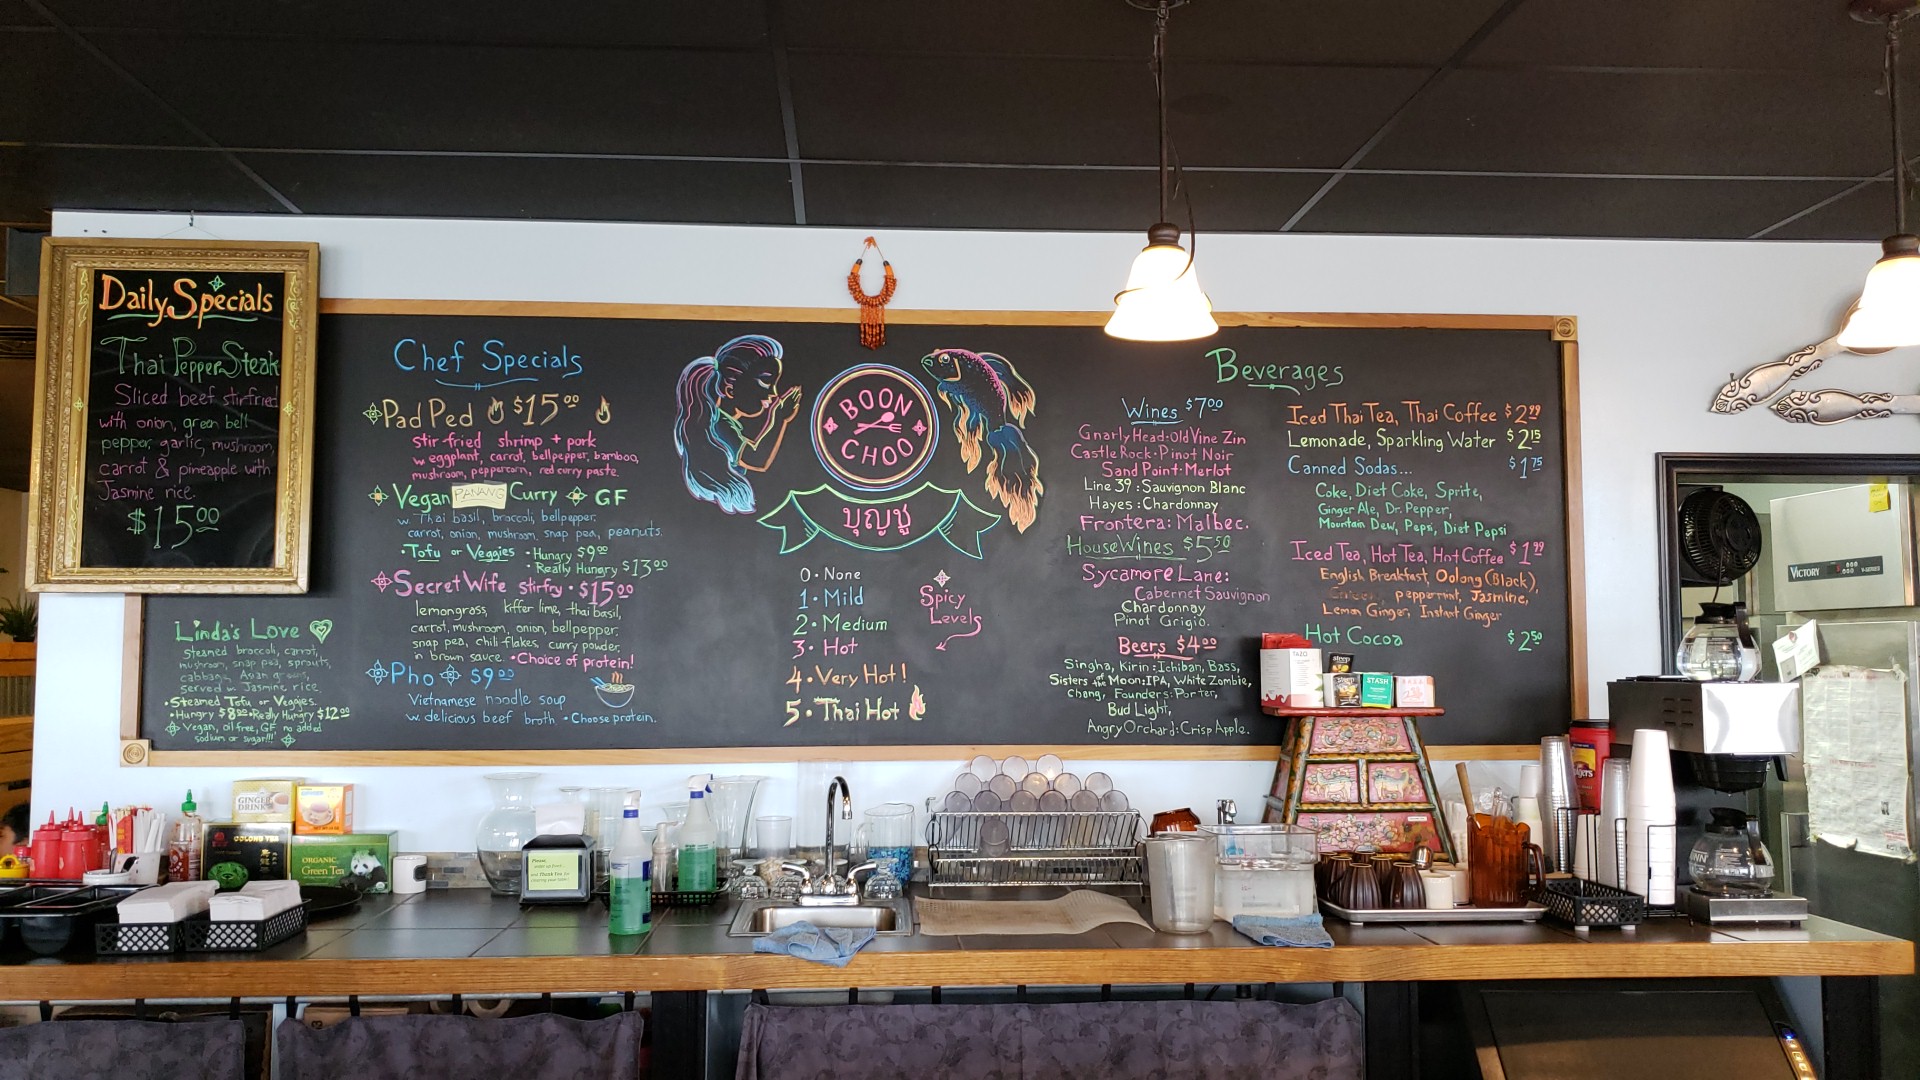 Daily Specials
Thai Pepper Steak
Sliced beef stirfried
with onion, green bell
pepper, garlic, mushroom,
carrot & pineapple with
Jasmine rice.
$15.00
Chef Specials
Pad Ped $15.00
Stir fried shrimp + pork
w eggplant, carrot, bellpepper, bamboo,
mushroom, peppercorn, red curry paste.
Vegan PANANG Curry GF
w. Thai basil, broccoli, bellpepper,
carrot, onion, mushroom, snap pea, peanuts.
•Tofu or Veggies •Hungry $9.00
•Really Hungry $13.00
Secret Wife Stirfry • $15.00
lemongrass, kiffer lime, thai basil,
carrot, mushroom, onion, bellpepper,
snap pea, chili flakes, curry powder,
in brown sauce. •Choice of protein!
Pho $9.00
Vietnamese noodle soup
w. delicious beef broth •Choose protein.
Linda's Love
Steamed broccoli, carrot,
mushroom, snap pea, sprouts,
cabbage, Asian greens,
Served w. Jasmine rice.
•Steamed Tofu or Veggies.
•Hungry $8.00 •Really Hungry $12.00
Vegan, oil free, GF, no added
sodium or sugar!!!
BOON
CHOO
บุญชู
0 • None
1 • Mild
2 • Medium
3 • Hot
4 • Very Hot!
5 • Thai Hot
Spicy
Levels
Beverages
Wines $7.00
Gnarly Head: Old Vine Zin
Castle Rock • Pinot Noir
Sand Point • Merlot
Line 39: Sauvignon Blanc
Hayes: Chardonnay
Frontera: Malbec.
House Wines $5.50
Sycamore Lane:
Cabernet Sauvignon
Chardonnay
Pinot Grigio.
Beers $4.00
Singha, Kirin: Ichiban, Bass,
Sisters of the Moon: IPA, White Zombie,
Chang, Founders: Porter,
Bud Light,
Angry Orchard: Crisp Apple.
Iced Thai Tea, Thai Coffee $2.99
Lemonade, Sparkling Water $2.15
Canned Sodas... $1.75
Coke, Diet Coke, Sprite,
Ginger Ale, Dr. Pepper,
Mountain Dew, Pepsi, Diet Pepsi
Iced Tea, Hot Tea, Hot Coffee $1.99
English Breakfast, Oolong (Black),
peppermint, Jasmine,
Lemon Ginger, Instant Ginger
Hot Cocoa $2.50
TAZO
STASH
VICTORY
GINGER
DRINK
OOLONG TEA
ORGANIC
Green Tea
Please,
and Thank You for